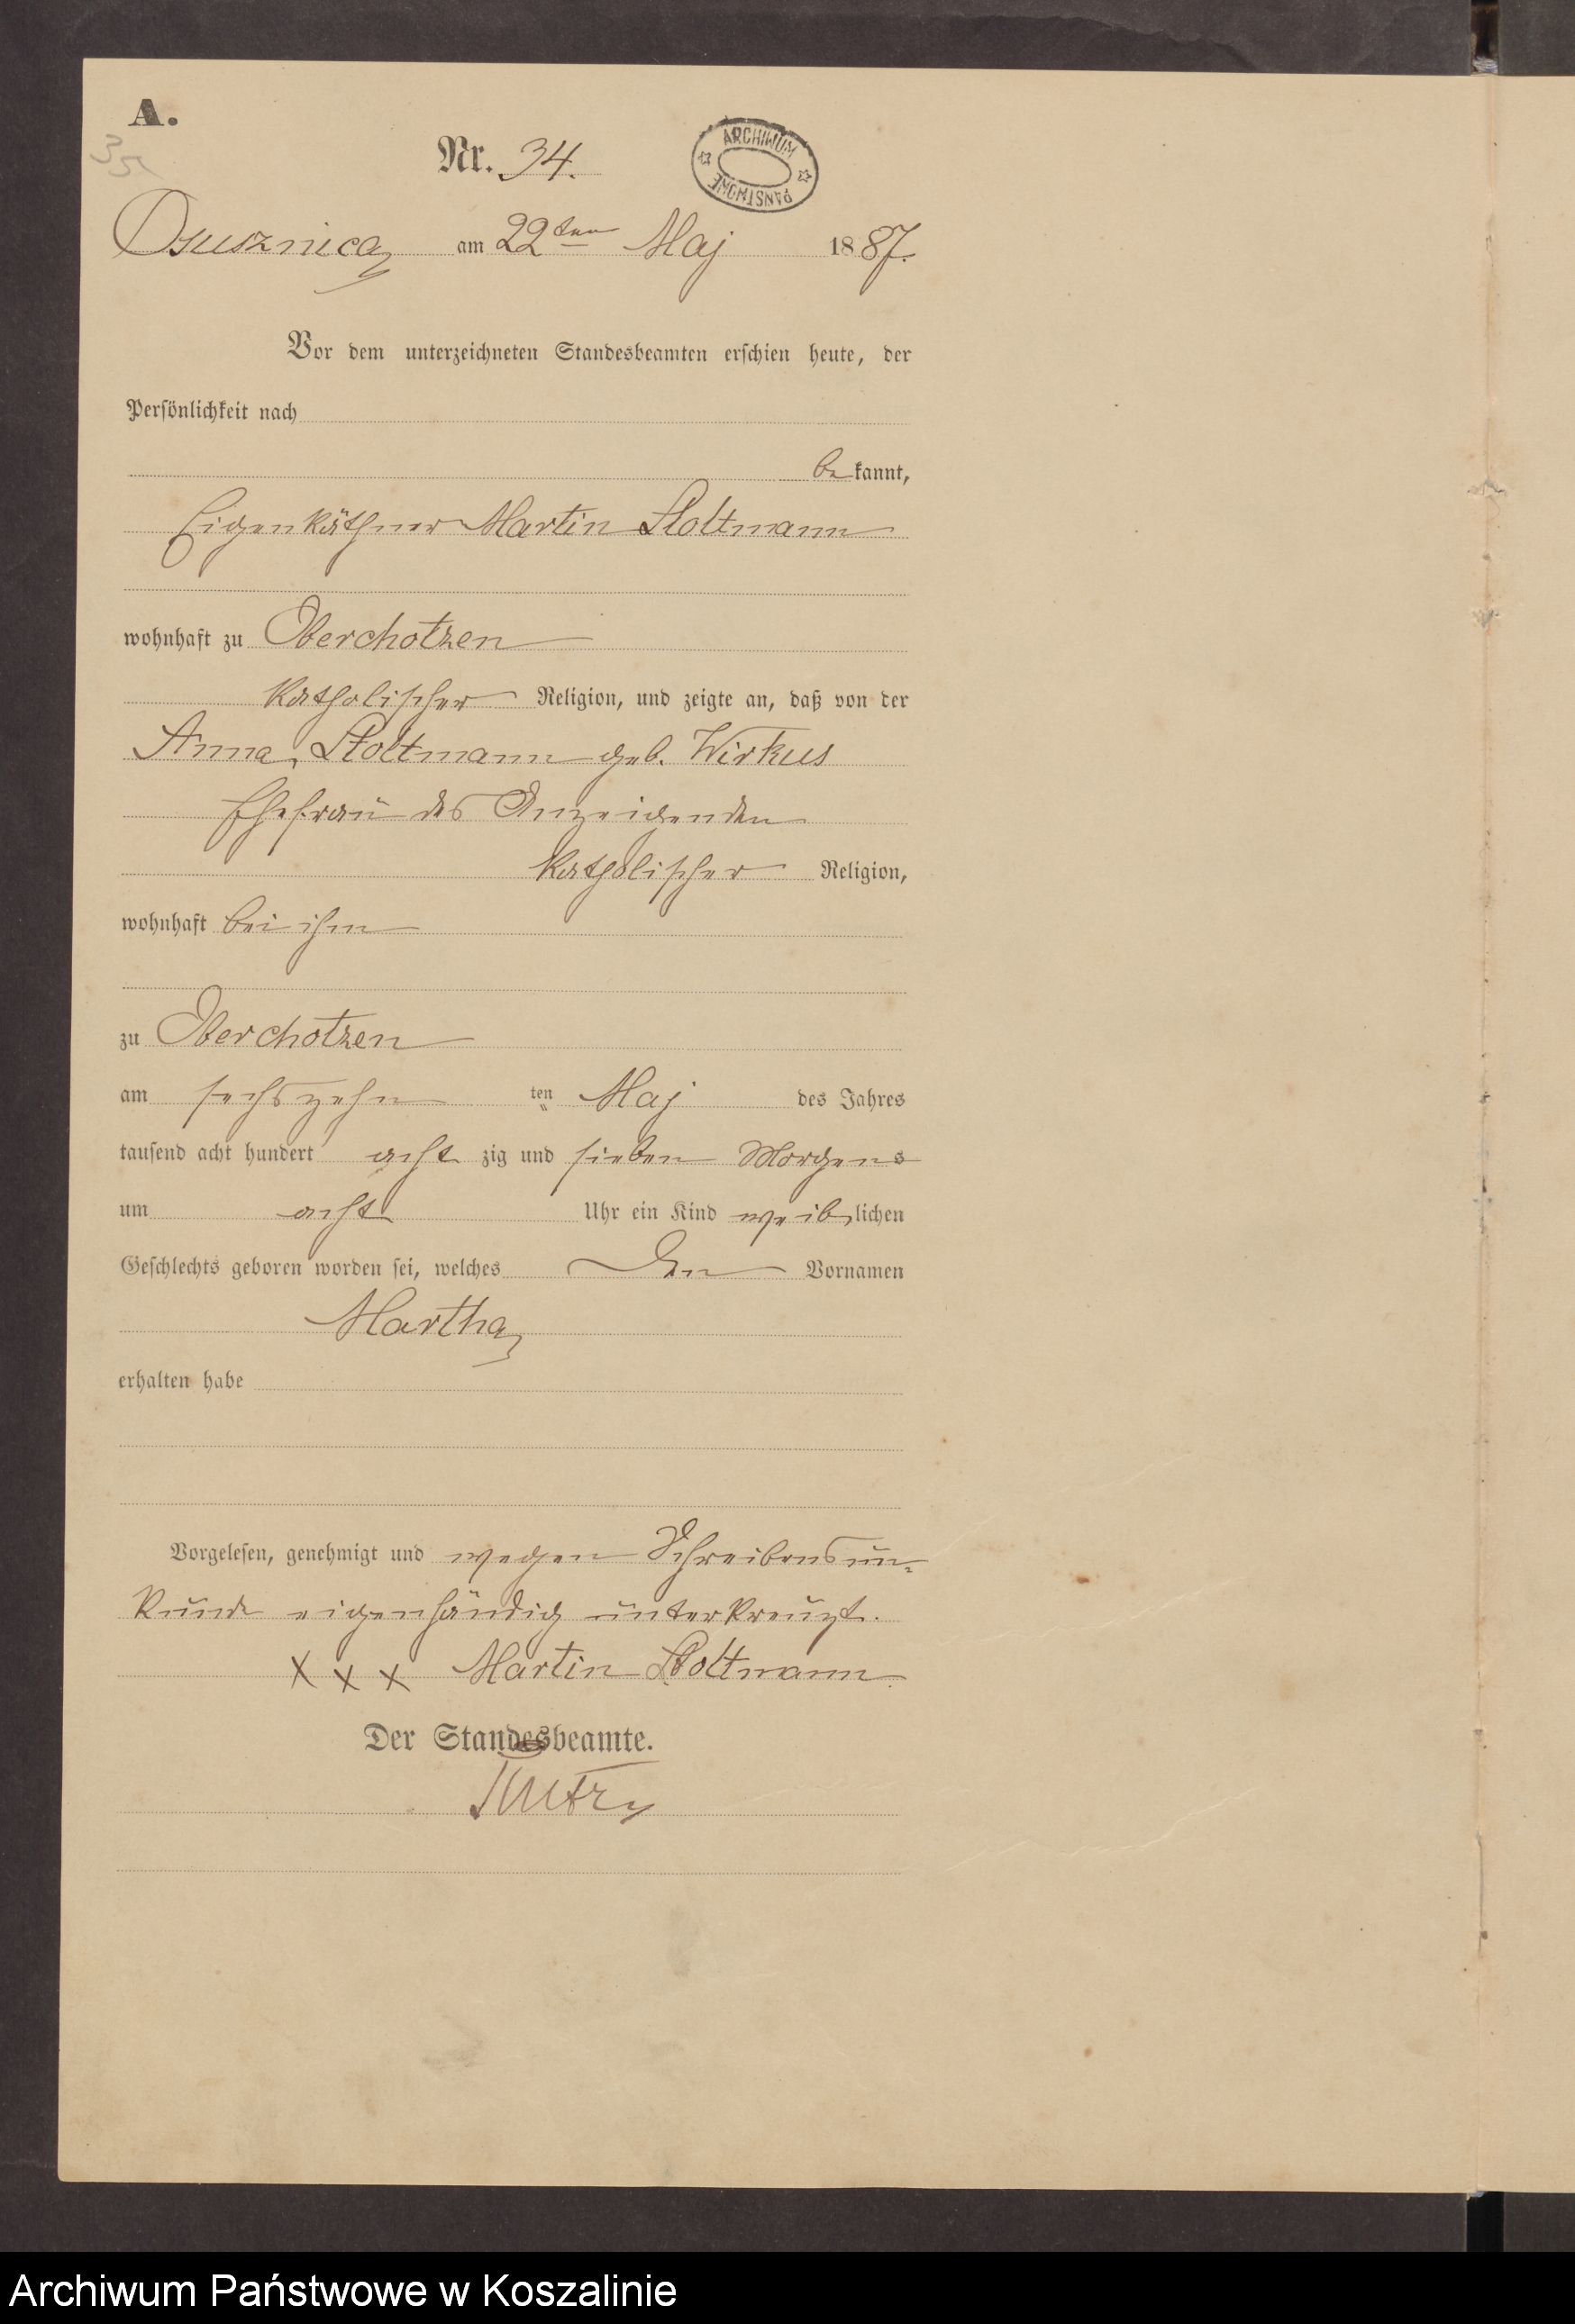 A.
35
Nr. 34.
ARCHIWUM PAŃSTWOWE
Osusznica am 22ten Maj 1887.
Vor dem unterzeichneten Standesbeamten erschien heute, der
Persönlichkeit nach
bekannt,
Eigenkäthner Martin Stoltmann
wohnhaft zu Oberchotzen
katholischer Religion, und zeigte an, daß von der
Anna, Stoltmann geb. Wirkus
Ehefrau des Anzeigenden
katholischer Religion,
wohnhaft bei ihm
zu Oberchotzen
am sechszehn ten Maj des Jahres
tausend acht hundert acht zig und sieben Morgens
um acht Uhr ein Kind weiblichen
Geschlechts geboren worden sei, welches den Vornamen
Martha
erhalten habe
Vorgelesen, genehmigt und wegen Schreibensun-
kunde eigenhändig unterkreuzt.
x x x Martin Stoltmann
Der Standesbeamte.
Archiwum Państwowe w Koszalinie